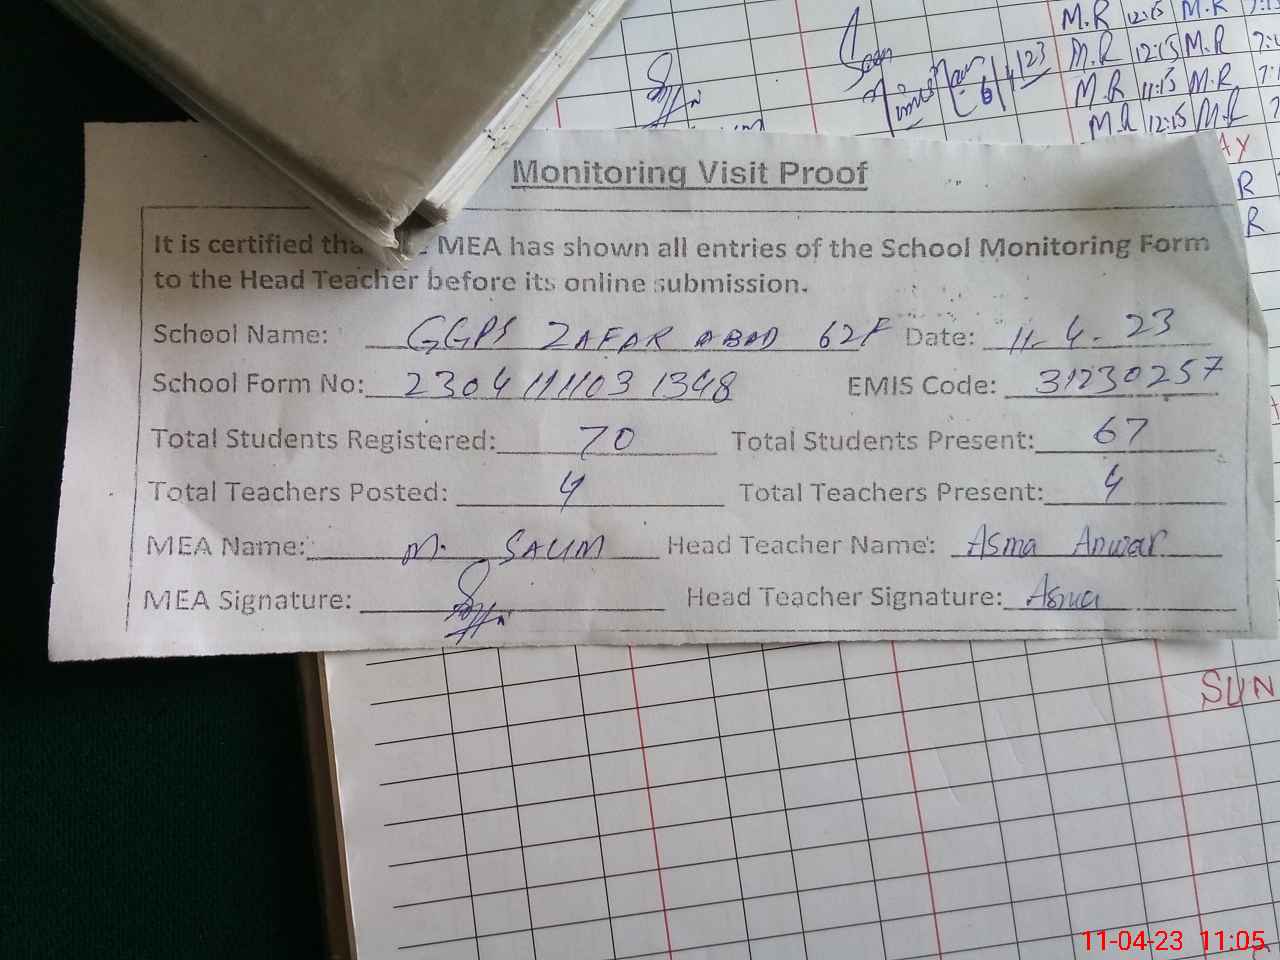 M.R 12:15 M.R
M.R 12:15 M.R
6/4/23
M.R 11:15 M.R
M.R 12:15 M.R
AY
R
R
Monitoring Visit Proof
It is certified MEA has shown all entries of the School Monitoring Form
to the Head Teacher before its online submission.
School Name: GGPS ZAFAR ABAD 62F Date: 11-4-23
School Form No: 2304111103 1348 EMIS Code: 31230257
Total Students Registered: 70 Total Students Present: 67
Total Teachers Posted: 4 Total Teachers Present: 4
MEA Name: M. SALIM Head Teacher Name: Asma Anwar
MEA Signature: Head Teacher Signature: Asma
SUN
11-04-23 11:05